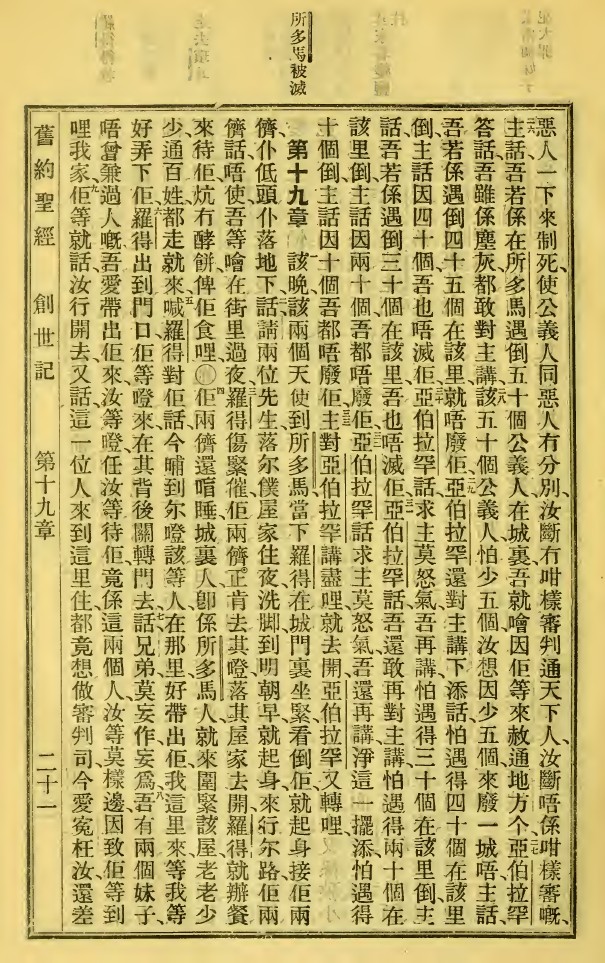 所多馬被滅
惡人一下來制死、使公義人同惡人有分別、汝斷冇咁樣審判通天下人、汝斷唔係咁樣審嘅、
二六主話、吾若係在所多馬遇倒五十個公義人在城裏、吾就噲因佢等來赦通地方、二七今亞伯拉罕
答話、吾雖係塵灰、都敢對主講、二八該五十個公義人怕少五個、汝想因少五個來廢一城唔、主話、
吾若係遇倒四十五個在該里、就唔廢佢、二九亞伯拉罕還對主講下添、話怕遇得四十個在該里
倒、主話因四十個吾也唔滅佢、三十亞伯拉罕話、求主莫怒氣、吾再講、怕遇得三十個在該里倒、主
話、吾若係遇倒三十個在該里、吾也唔滅佢、三一亞伯拉罕話、吾還敢再對主講、怕遇得兩十個在
該里倒、主話因兩十個、吾都唔廢佢、三二亞伯拉罕話、求主莫怒氣、吾還再講淨這一擺添、怕遇得
十個倒、主話因十個吾都唔廢佢、三三主對亞伯拉罕講盡哩、就去開、亞伯拉罕又轉哩、
第十九章 一該晚該兩個天使到所多馬、當下羅得在城門裏坐緊、看倒佢、就起身接佢兩
儕、仆低頭仆落地下、二話請兩位先生落尔僕屋家住夜洗脚、到明朝早就起身來行尔路、佢兩
儕話唔使、吾等噲在街里過夜、三羅得傷緊催佢兩儕、正肯去其噔、落其屋家去開、羅得就辦餐
來待佢、炕冇酵餅俾佢食哩、〇四佢兩儕還喑睡、城裏人卽係所多馬人、就來圍緊該屋、老老少
少通百姓都走就來、五喊羅得對佢話、今晡到尔噔該等人在那里、好帶出佢我這里來、等我等
好弄下佢、六羅得出到門口佢等噔來、在其背後關轉門去、七話兄弟莫妄作妄爲、八吾有兩個妹子、
唔曾𠊎過人嘅、吾愛帶出佢來汝等噔、任汝等待佢、竟係這兩個人、汝等莫樣邊、因致佢等到
哩我家、九佢等就話、汝行開去、又話這一位人來到這里住、都竟想做審判司、今愛寃枉汝還差
舊約聖經 創世記 第十九章 二十一